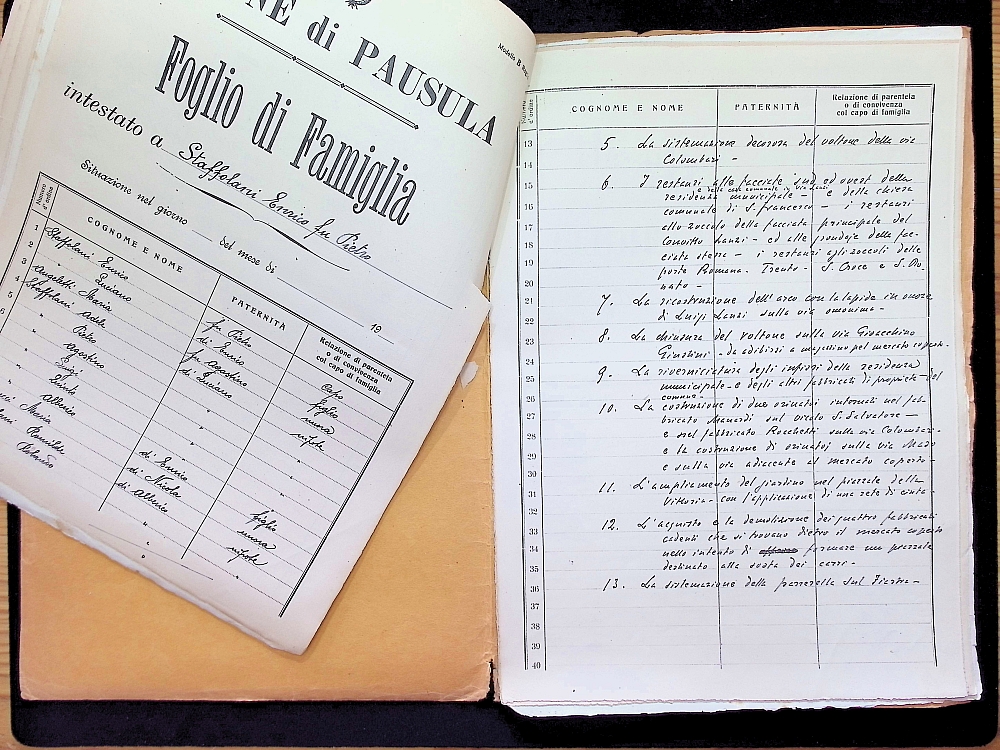 NE di PAUSULA
Modello B
Foglio di Famiglia
intestato a Staffolani Enrico fu Pietro
Situazione nel giorno del mese di 19
Numero d'ordine
COGNOME E NOME
PATERNITÀ
Relazione di parentela o di convivenza col capo di famiglia
1 Staffolani Enrico fu Pietro Capo
2 " Luciano di Enrico figlio
3 Angeletti Maria fu Agostino nuora
4 Staffolani Adele di Luciano nipote
5 " Pietro " "
" Agostino " "
" Luigi
" Quinto
" Alberico di Enrico figlio
Maria di Nicola nuora
Romilde di Alberico nipote
Numero d'ordine
COGNOME E NOME
PATERNITÀ
Relazione di parentela
o di convivenza
col capo di famiglia
13 5. La sistemazione decorosa del voltone della via
14 Colombari -
15 6. I restauri alle facciate sud ed ovest della
e della casa comunale in via Lanzi
16 residenza municipale - e della chiesa
comunale di S. Francesco - i restauri
17 allo zoccolo della facciata principale del
18 Convitto Lanzi - ed alle grondaje della fac-
19 ciata stessa - i restauri agli zoccoli delle
porte Romana - Trento - S. Croce e S. Do-
20 nato -
21 7. La ricostruzione dell'arco con la lapide in onore
22 di Luigi Lanzi sulla via omonima -
23 8. La chiusura del voltone sulla via Gioacchino
24 Giustini - da adibirsi a magazzino pel mercato copert.
25 9. La riverniciatura degli infissi della residenza
municipale - e degli altri fabbricati di proprietà del
26 comune -
27 10. La costruzione di due orinatoi interrati nel fab-
bricato Manardi sul vicolo S. Salvatore -
28 e nel fabbricato Rocchetti sulla via Colombar-
29 e la costruzione di orinatoi sulla via
30 e sulla via adiacente al mercato coperto -
31 11. L'ampliamento del giardino nel piazzale della
Vittoria - con l'applicazione di una rete di cinta -
32
33 12. L'acquisto e la demolizione dei quattro fabbricati
cadenti che si trovano dietro il mercato coperto
34 nello intento di formare un piazzale
35 destinato alla sosta dei carri -
36 13. La sistemazione della passerella sul Fiastra -
37
38
39
40